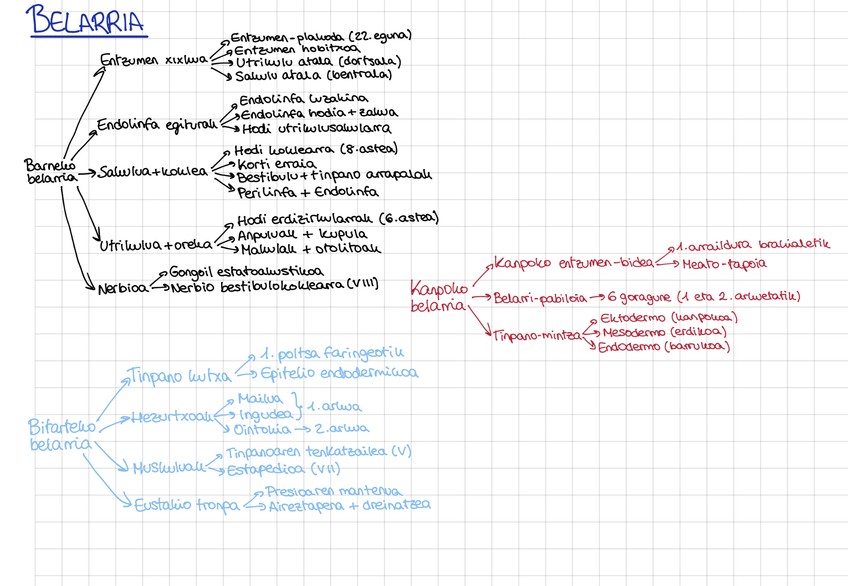 BELARRIA
Barneko belarria
Entzumen xixkua
Entzumen-plakoda (22. eguna)
Entzumen hobitxoa
Utrikulu atala (dortsala)
Sakulu atala (bentrala)
Endolinfa egiturak
Endolinfa luzakina
Endolinfa hodia + zakua
Hodi utrikulusakularra
Sakulua + koklea
Hodi koklearra (8. astea)
Korti erraia
Bestibulu + tinpano arrapalak
Perilinfa + Endolinfa
Utrikulua + oreka
Hodi erdizirkularrak (6. astea)
Anpuluak + kupula
Makulak + otolitoak
Nerbioa
Gongoil estatoakustikoa
Nerbio bestibulokoklearra (VIII)
Kanpoko belarria
Kanpoko entzumen-bidea
1. arraildura brakialetik
Meato-tapoia
Belarri-pabiloia
6 goragune (1 eta 2. arkuetatik)
Tinpano-mintza
Ektodermo (kanpokoa)
Mesodermo (erdikoa)
Endodermo (barrukoa)
Bitarteko belarria
Tinpano kutxa
1. poltsa faringeotik
Epitelio endodermikoa
Hezurtxoak
Mailua
Ingudea
1. arkua
Ointokia → 2. arkua
Muskuluak
Tinpanoaren tenkatzailea (V)
Estapedioa (VII)
Eustakio tronpa
Presioaren mantenua
Aireztapena + dreinatzea